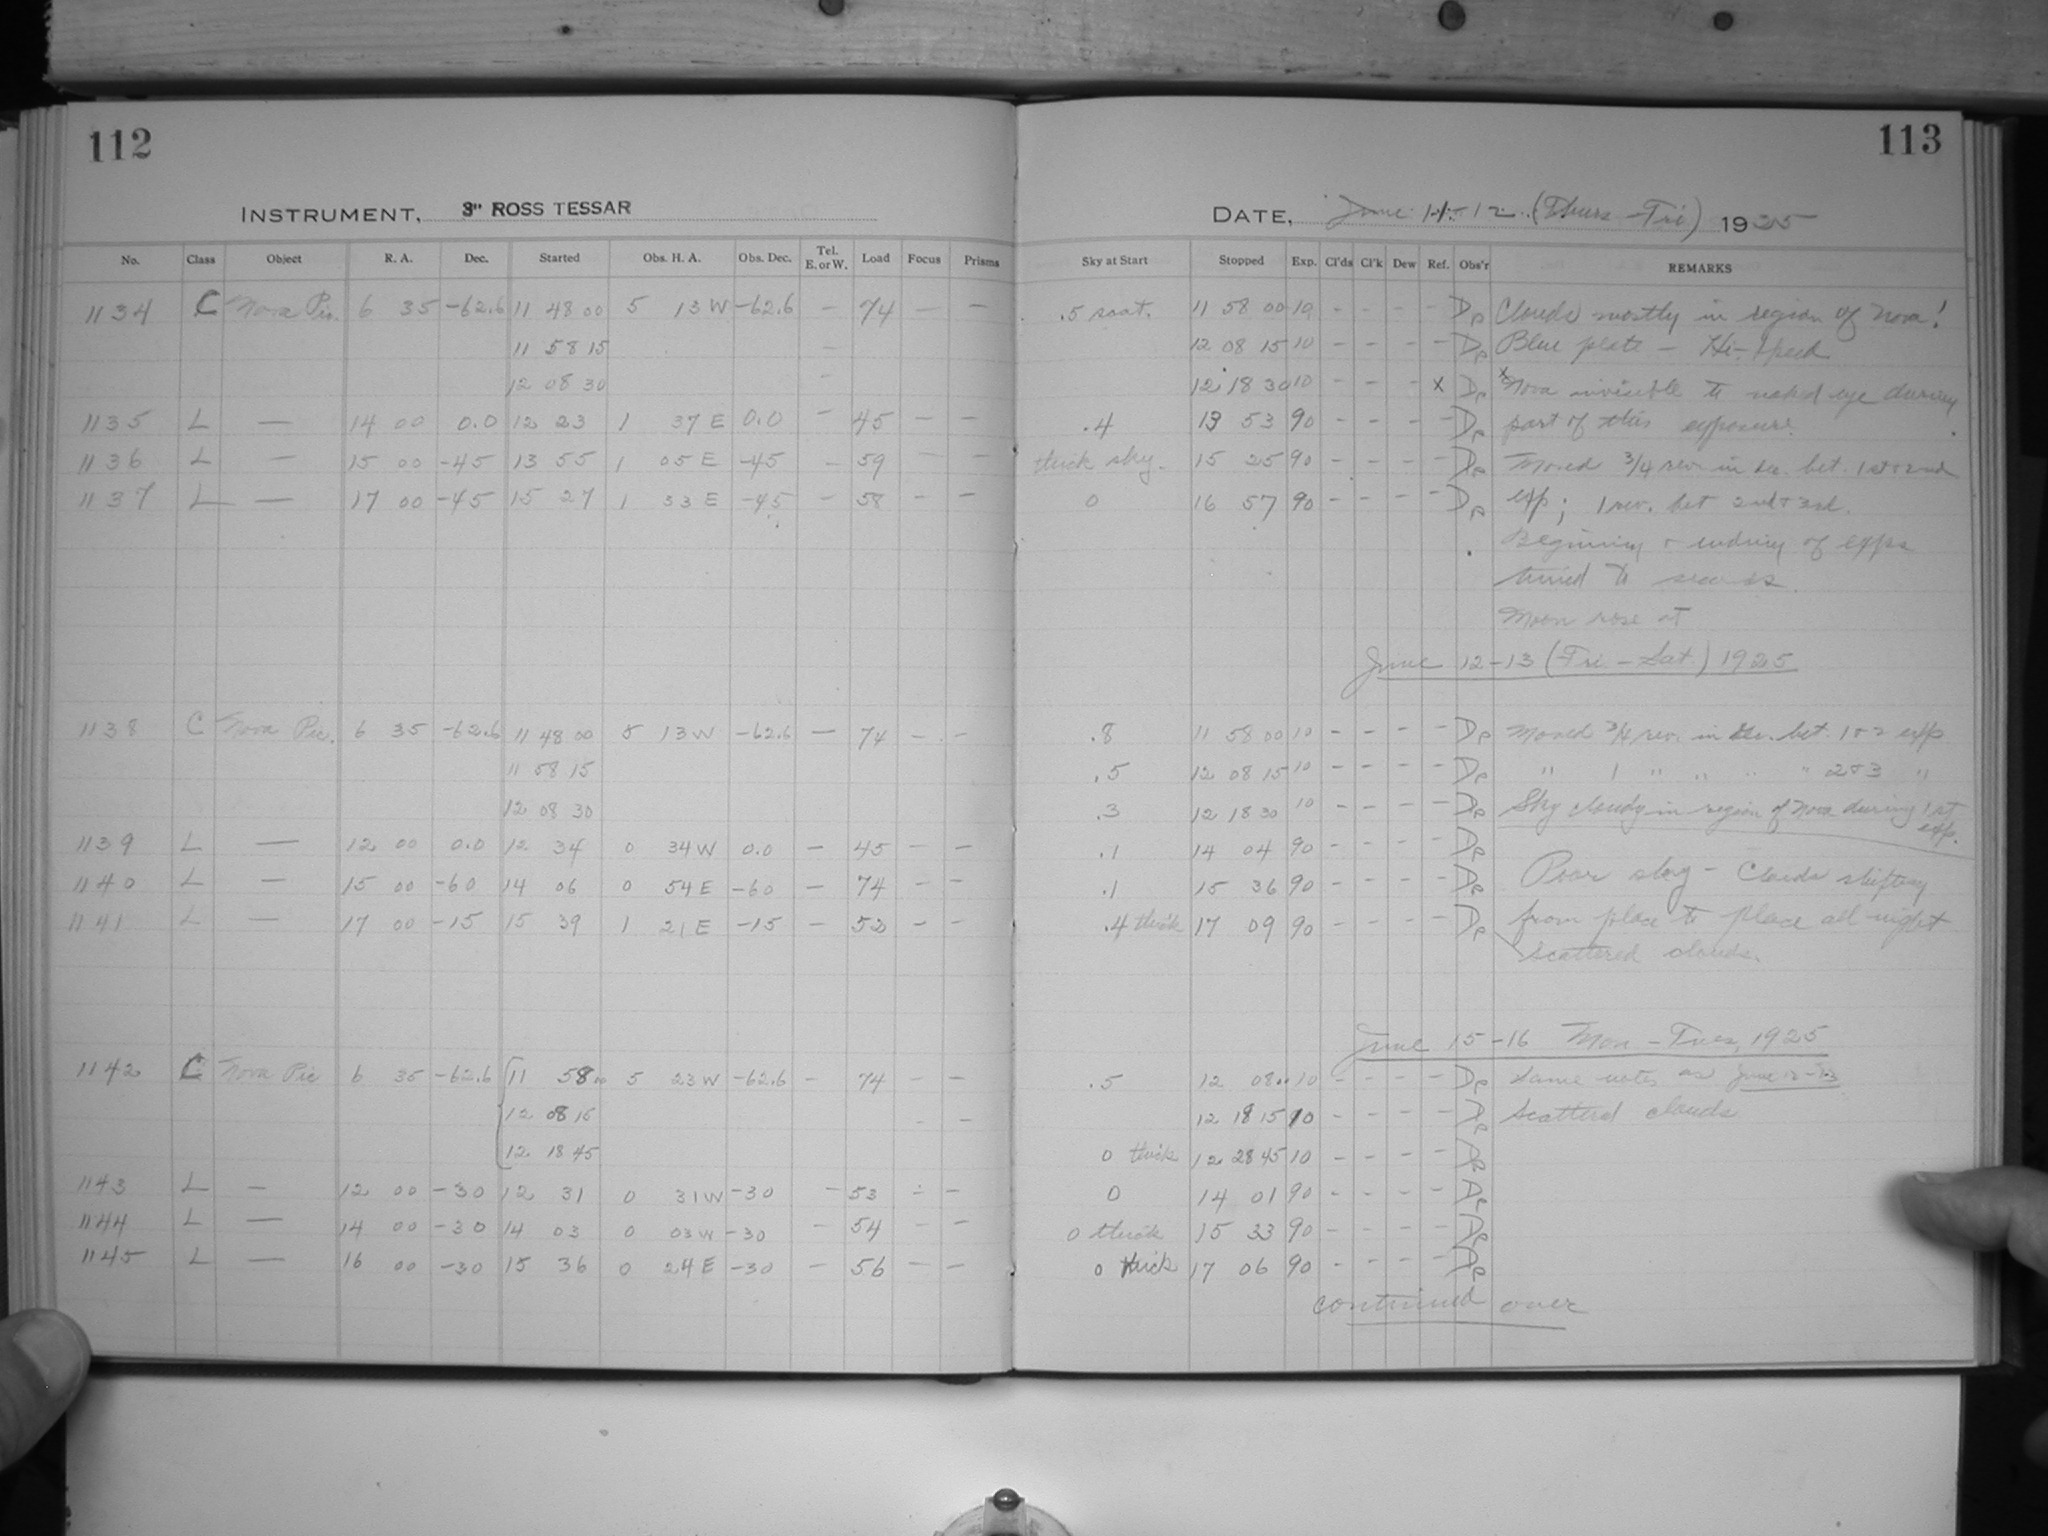 112
113
INSTRUMENT, 3" ROSS TESSAR
DATE, June 11-12 (Thurs - Fri) 1925
No. Class Object R. A. Dec. Started Obs. H. A. Obs. Dec. Tel. E. or W. Load Focus Prisms Sky at Start Stopped Exp. Cl'ds Cl'k Dew Ref. Obs'r REMARKS
1134 C Nova Pic. 6 35 -62.6 11 48 00 5 13 W -62.6 — 74 — — .5 scat. 11 58 00 10 - - - - Dp Clouds mostly in region of Nova!
11 58 15 — 12 08 15 10 - - - - Dp Blue plate - Hi-Speed.
12 08 30 — 12 18 30 10 - - - x Dp xNova invisible to naked eye during
1135 L — 14 00 0.0 12 23 1 37 E 0.0 — 45 — — .4 13 53 90 - - - - Dp part of this exposure.
1136 L — 15 00 -45 13 55 1 05 E -45 — 59 — — thick sky. 15 25 90 - - - - Dp Moved 3/4 rev. in dec. bet. 1st & 2nd
1137 L — 17 00 -45 15 27 1 33 E -45 — 58 — — 0 16 57 90 - - - - Dp exp; 1 rev. bet 2nd & 3rd.
Beginning & ending of exps
timed to seconds
Moon rose at
June 12-13 (Fri. - Sat.) 1925
1138 C Nova Pic. 6 35 -62.6 11 48 00 5 13 W -62.6 — 74 — — .8 11 58 00 10 - - - - Dp Moved 3/4 rev. in dec. bet. 1 & 2 exp
11 58 15 .5 12 08 15 10 - - - - Dp " 1 " " " " 2 & 3 "
12 08 30 .3 12 18 30 10 - - - - Dp Sky cloudy in region of Nova during 1st exp.
1139 L — 12 00 0.0 12 34 0 34 W 0.0 — 45 — — .1 14 04 90 - - - - Dp
1140 L — 15 00 -60 14 06 0 54 E -60 — 74 — — .1 15 36 90 - - - - Dp Poor sky - Clouds shifting
1141 L — 17 00 -15 15 39 1 21 E -15 — 52 — — .4 thick 17 09 90 - - - - Dp from place to place all night
Scattered clouds.
June 15-16 Mon - Tues, 1925
1142 C Nova Pic 6 35 -62.6 11 58 00 5 23 W -62.6 — 74 — — .5 12 08 10 - - - - Dp Same notes as June 12-13
12 08 15 — — 12 18 15 10 - - - - Dp Scattered clouds
12 18 45 0 thick 12 28 45 10 - - - - Dp
1143 L — 12 00 -30 12 31 0 31 W -30 — 53 — — 0 14 01 90 - - - - Dp
1144 L — 14 00 -30 14 03 0 03 W -30 — 54 — — 0 thick 15 33 90 - - - - Dp
1145 L — 16 00 -30 15 36 0 24 E -30 — 56 — — 0 thick 17 06 90 - - - - Dp
continued over